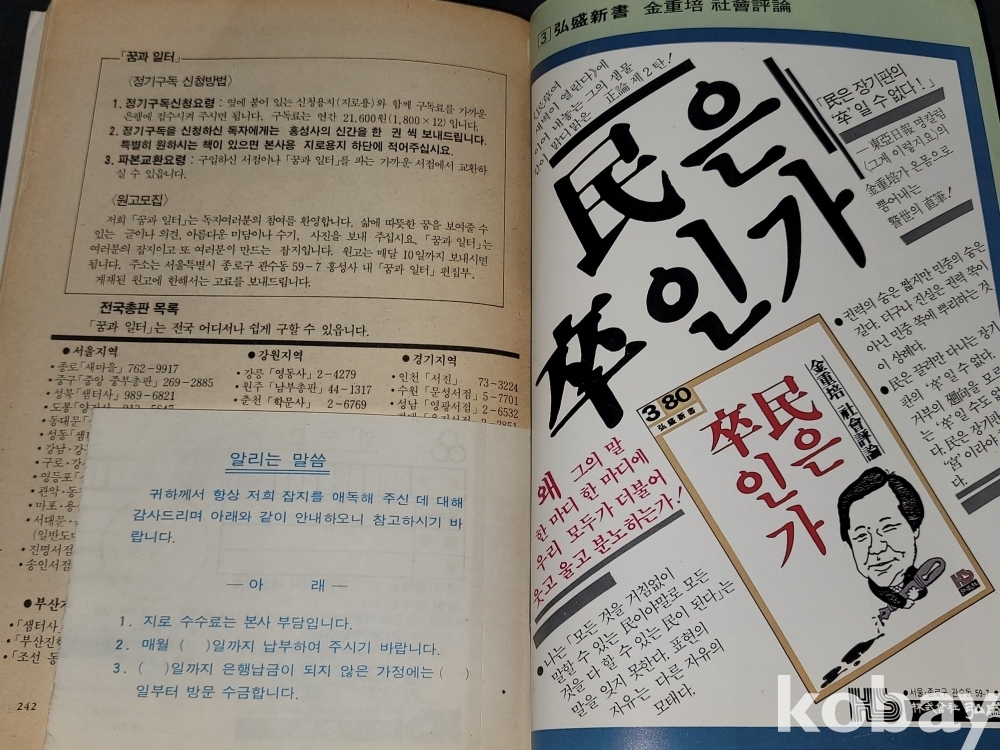 「꿈과 일터」
〈정기구독 신청방법〉
1. 정기구독신청요령 : 옆에 붙어 있는 신청용지(지로용)와 함께 구독료를 가까운
은행에 접수시켜 주시면 됩니다. 구독료는 연간 21.600원(1,800×12)입니다.
2. 정기구독을 신청하신 독자에게는 홍성사의 신간을 한 권 씩 보내드립니다.
특별히 원하시는 책이 있으면 본사용 지로용지 하단에 적어주십시요.
3. 파본교환요령 : 구입하신 서점이나 「꿈과 일터」를 파는 가까운 서점에서 교환하
실 수 있읍니다.
〈원고모집〉
저희 「꿈과 일터」는 독자여러분의 참여를 환영합니다. 삶에 따뜻한 꿈을 보여줄 수
있는 글이나 의견, 아름다운 미담이나 수기, 사진을 보내 주십시요. 「꿈과 일터」는
여러분의 잡지이고 또 여러분이 만드는 잡지입니다. 원고는 매달 10일까지 보내시면
됩니다. 주소는 서울특별시 종로구 관수동 59-7 홍성사 내 「꿈과 일터」 편집부.
게재된 원고에 한해서는 고료를 보내드립니다.
전국총판 목록
「꿈과 일터」는 전국 어디서나 쉽게 구할 수 있읍니다.
●서울지역
•종로「새마을」 762-9917
•중구「중앙 중부총판」 269-2885
•성북「샘터사」 989-6821
도봉
•동대문
•성동「샘터
•강남·강
•구로·강
•영등포「
•관악·동
•마포·용
•서대문·
(일반도
•진명서점
•송인서점
●부산지
•「샘터사」
•「부산진학
•「조선 동
●강원지역
강릉「영동사」 2-4279
원주「남부총판」 44-1317
춘천「학문사」 2-6769
●경기지역
인천「서진」 73-3224
수원「문성서점」 5-7701
성남「영광서점」 2-6532
알리는 말씀
귀하께서 항상 저희 잡지를 애독해 주신 데 대해
감사드리며 아래와 같이 안내하오니 참고하시기 바
랍니다.
— 아 래 —
1. 지로 수수료는 본사 부담입니다.
2. 매월 ( )일까지 납부하여 주시기 바랍니다.
3. ( )일까지 은행납금이 되지 않은 가정에는 ( )
일부터 방문 수금합니다.
242
3 弘盛新書 金重培 社會評論
새벽이 열린다》에
이어 내놓는 그의 샘물
같이 맑디맑은 正論 제2탄!
民은
卒인가
「民은 장기판의
'卒'일 수 없다!」
—東亞日報 명칼럼
〈그게 이렇지요〉의
金重培가 온몸으로
뿜어내는
警世의 直筆!
●권력의 숨은 짧지만 민중의 숨은
길다. 더구나 진실은 권력 쪽이
아닌 민중 쪽에 뿌리하는 것
이 상례다.
●民은 끌려만 다니는 장기
의 '卒'일 수 없다.
는 '卒'일 수도
다. 民은 장기
'宮'이라야
다.
왜 그의 말
한 마디 한 마디에
우리 모두가 더불어
웃고 울고 분노하는가!
3 80
弘盛新書
金重培 社會評論
民은
卒인가
HS
●나는 「모든 것을 거침없이
말할 수 있는 民이야말로 모든
것을 다 할 수 있는 民이 된다」는
말을 잊지 못한다. 표현의
자유는 다른 자유의
모태다.
HS
●서울·종로구 관수동 59-7
株式會社 弘盛
kobay